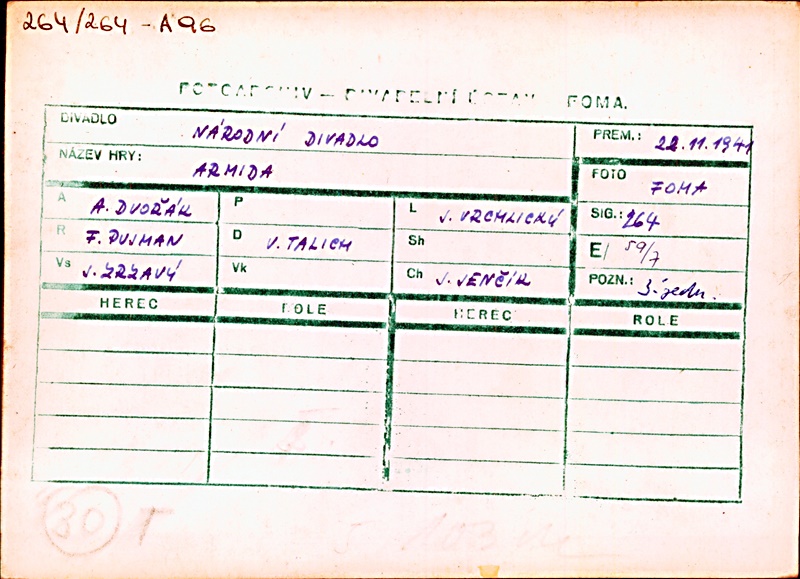 264/264 - A 96
FOTOARCHIV — DIVADELNÍ ÚSTAV FOMA.
DIVADLO NÁRODNÍ DIVADLO PREM.: 22.11.1941
NÁZEV HRY: ARMIDA FOTO FOMA
A A. DVOŘÁK P L J. VRCHLICKÝ SIG.: 264
R F. PUJMAN D V. TALICH Sh E/ 59/7
Vs J. ZRZAVÝ Vk Ch J. JENČÍK POZN.: 3. jedn.
HEREC ROLE HEREC ROLE
30 T